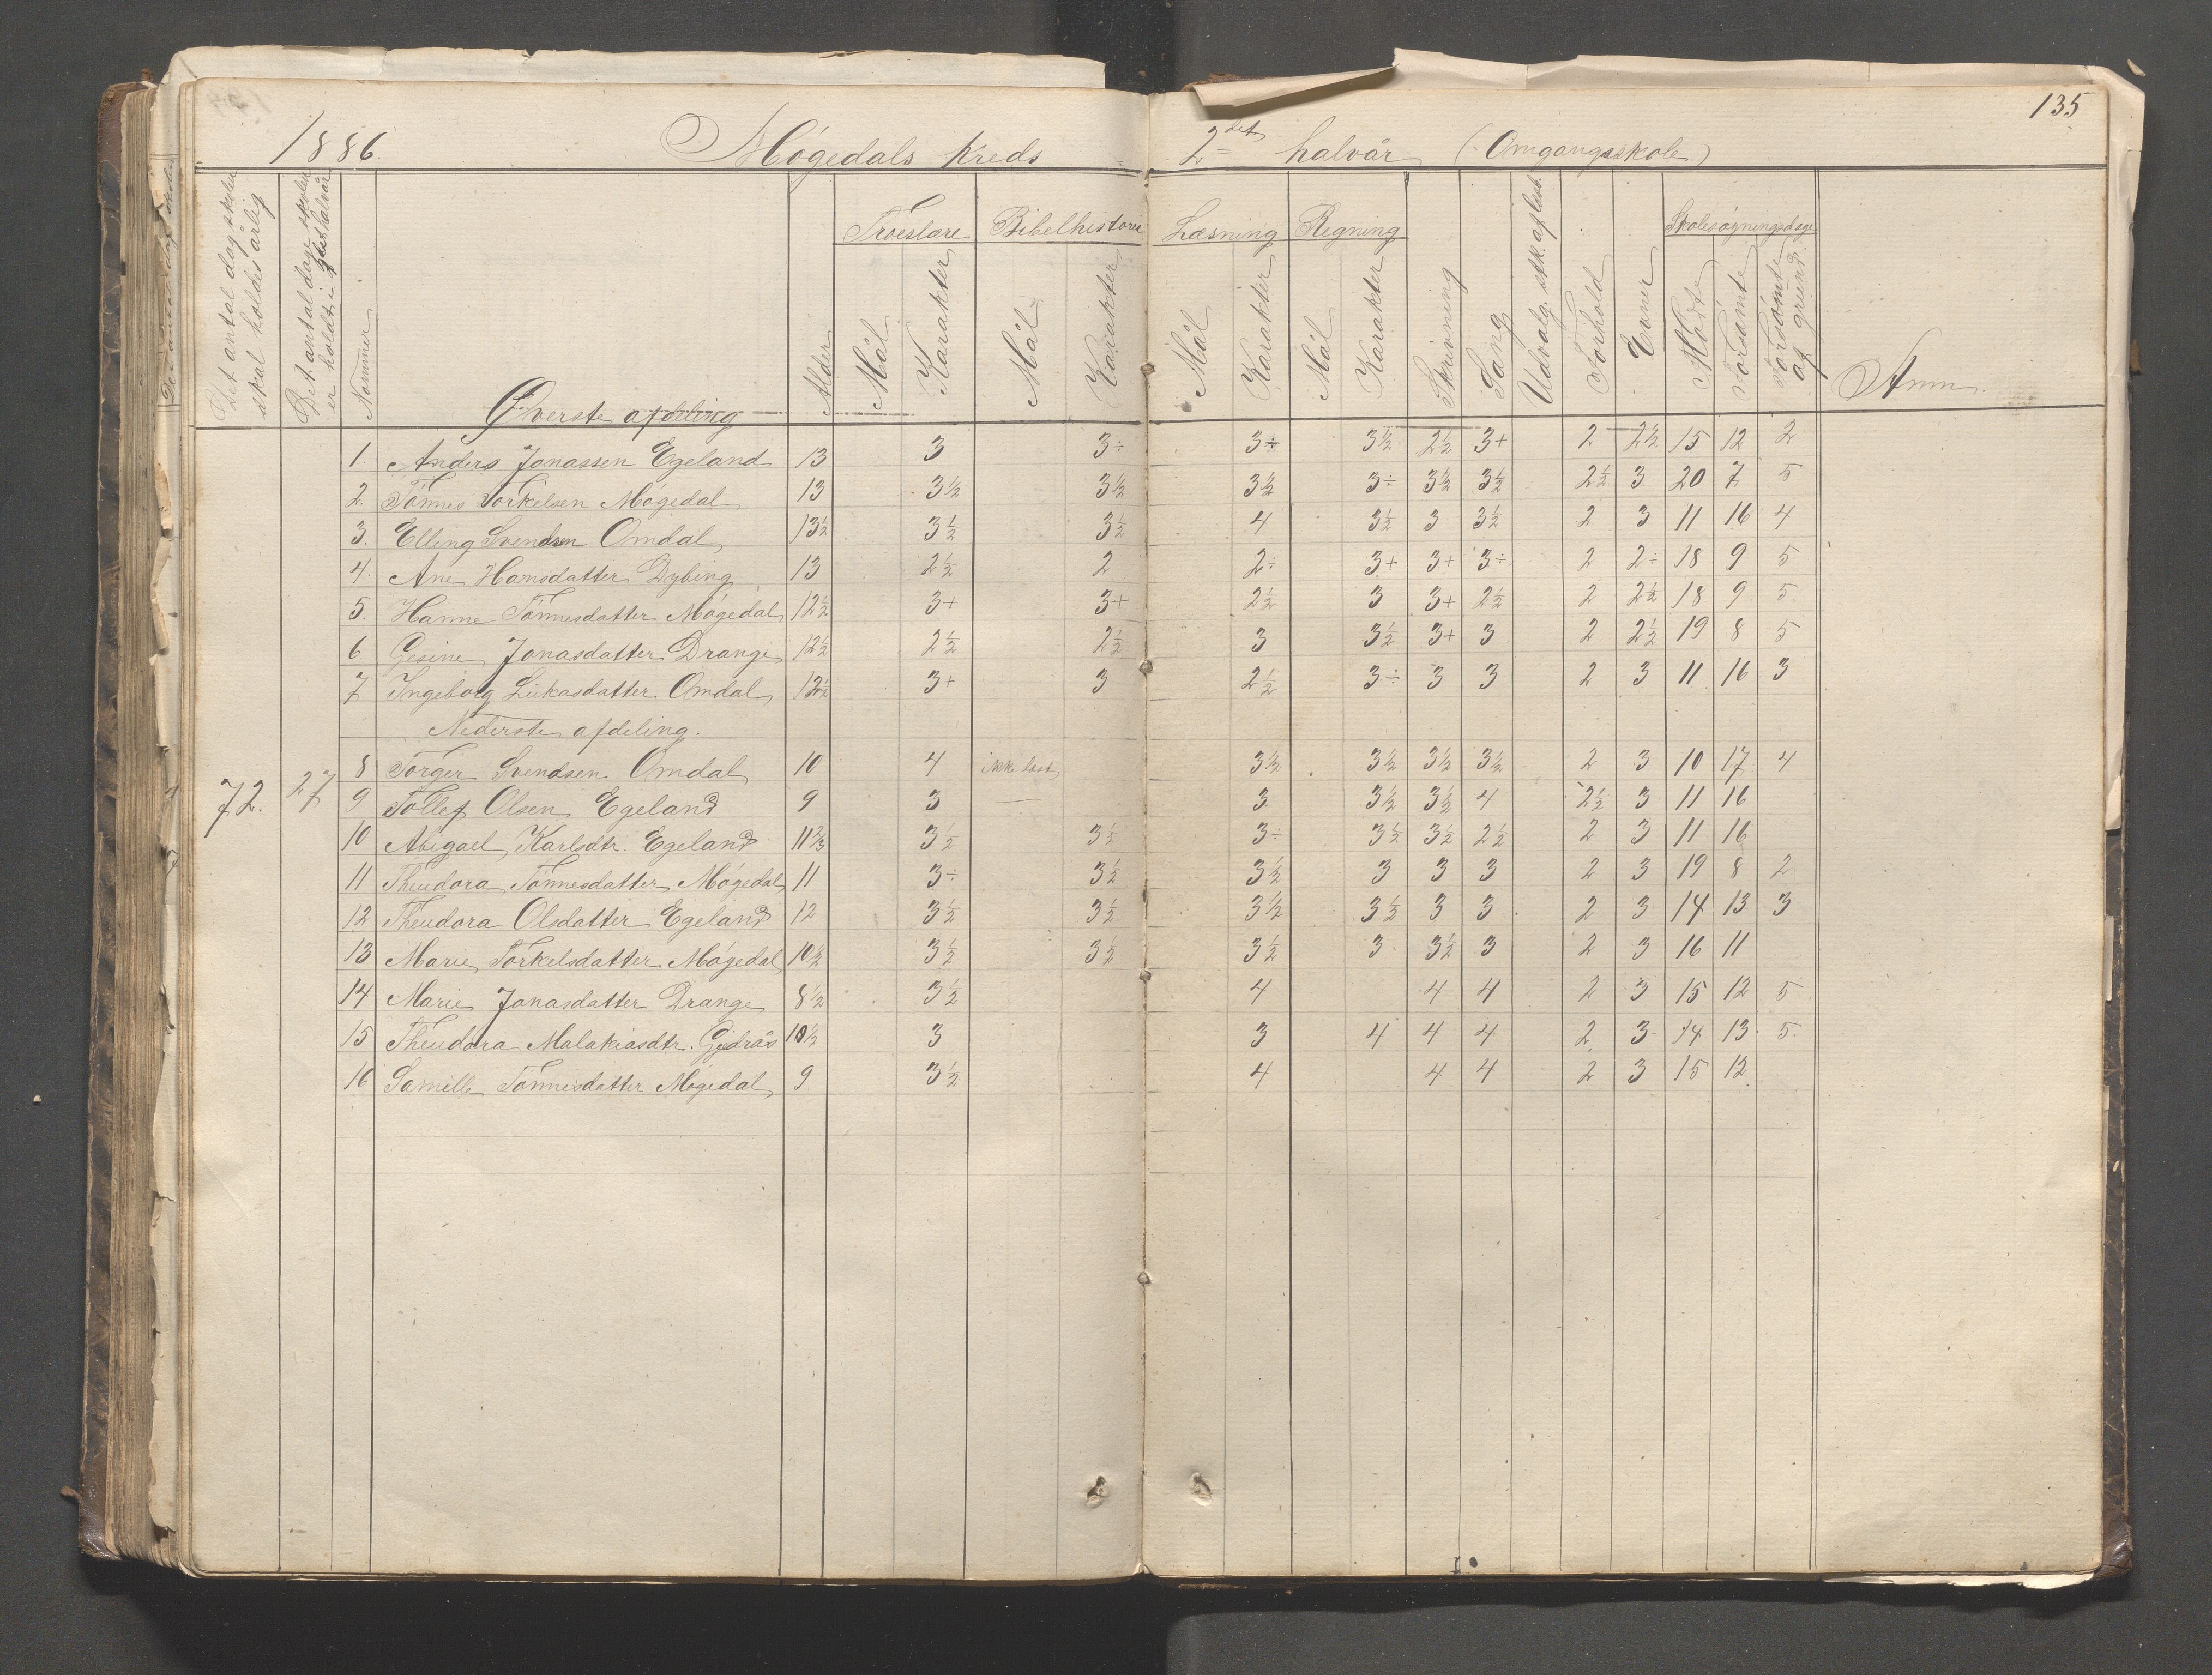 135
1886. Mögedals Kreds 2det halvår (Omgangsskole)
Det antal dag skolen skal holdes årlig
Det antal dage skolen er holdt i halvår
Nommer
Øverste afdeling
Alder
Troeslære
Mål
Karakter
Bibelhistorie
Mål
Karakter
Læsning
Mål
Karakter
Regning
Mål
Karakter
Skrivning
Sang
Udvalg. stk. af læseb.
Forhold
Evner
Skolesøgningsdage
Mødte
Forsömte
Forsömte af grund
Anm.
1. Anders Jonassen Egeland 13 3 3÷ 3÷ 3½ 2½ 3+ 2 2½ 15 12 2
2. Tönnes Torkelsen Mögedal 13 3½ 3½ 3½ 3÷ 3½ 3½ 2½ 3 20 7 5
3. Elling Svendsen Omdal 13½ 3½ 3½ 4 3½ 3 3½ 2 3 11 16 4
4. Ane Hansdatter Dybing 13 2½ 2 2÷ 3+ 3+ 3÷ 2 2÷ 18 9 5
5. Hanne Tönnesdatter Mögedal 12½ 3+ 3+ 2½ 3 3+ 2½ 2 2½ 18 9 5
6 Gesine Jonasdatter Drange 12½ 2½ 2½ 3 3½ 3+ 3 2 2½ 19 8 5
7 Ingeborg Lukasdatter Omdal 12½ 3+ 3 2½ 3÷ 3 3 2 3 11 16 3
Nederste afdeling.
8 Torger Svendsen Omdal 10 4 ikke læst 3½ 3½ 3½ 3½ 2 3 10 17 4
72. 27 9 Tollef Olsen Egeland 9 3 — 3 3½ 3½ 4 2½ 3 11 16
10 Abigael Karlsdtr. Egeland 11⅔ 3½ 3½ 3÷ 3½ 3½ 2½ 2 3 11 16
11 Theudora Tönnesdatter Mögedal 11 3÷ 3½ 3½ 3 3 3 2 3 19 8 2
12 Theudora Olsdatter Egeland 12 3½ 3½ 3½ 3½ 3 3 2 3 14 13 3
13 Marie Torkelsdatter Mögedal 10½ 3½ 3½ 3½ 3 3½ 3 2 3 16 11
14 Marie Jonasdatter Drange 8½ 3½ 4 4 4 2 3 15 12 5
15 Theudora Malakiasdtr. 10½ 3 3 4 4 4 2 3 14 13 5
16 Samille Tönnesdatter Mögedal 9 3½ 4 4 4 2 3 15 12